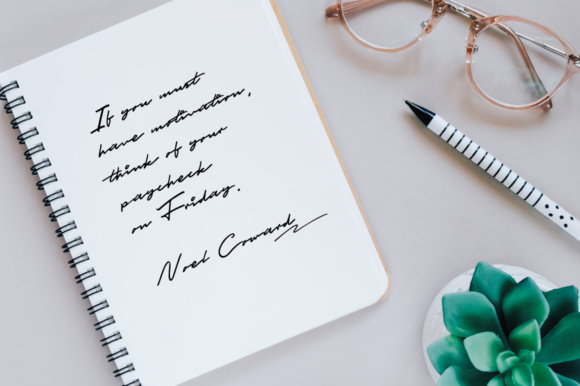 If you must
have motivation,
think of your
paycheck
on Friday.
Noel Coward